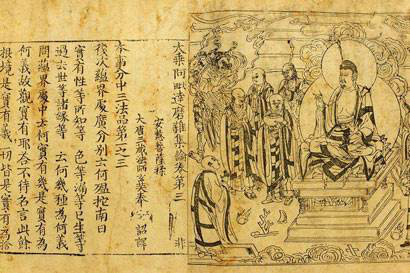 大乘阿毗達磨雜集論卷第三 非
安慧菩薩糅
大唐三藏法師玄奘奉 詔譯
本事分中三法品第一之三
復次蘊界處廣分別云何嗢拕南曰
實有性等所知等 色等漏等已生等
過去世等諸緣等 云何幾種為何義
問蘊界處中云何實有幾是實有為
何義故觀實有耶答不待名言此餘
根境是實有義一切皆是實有為捨